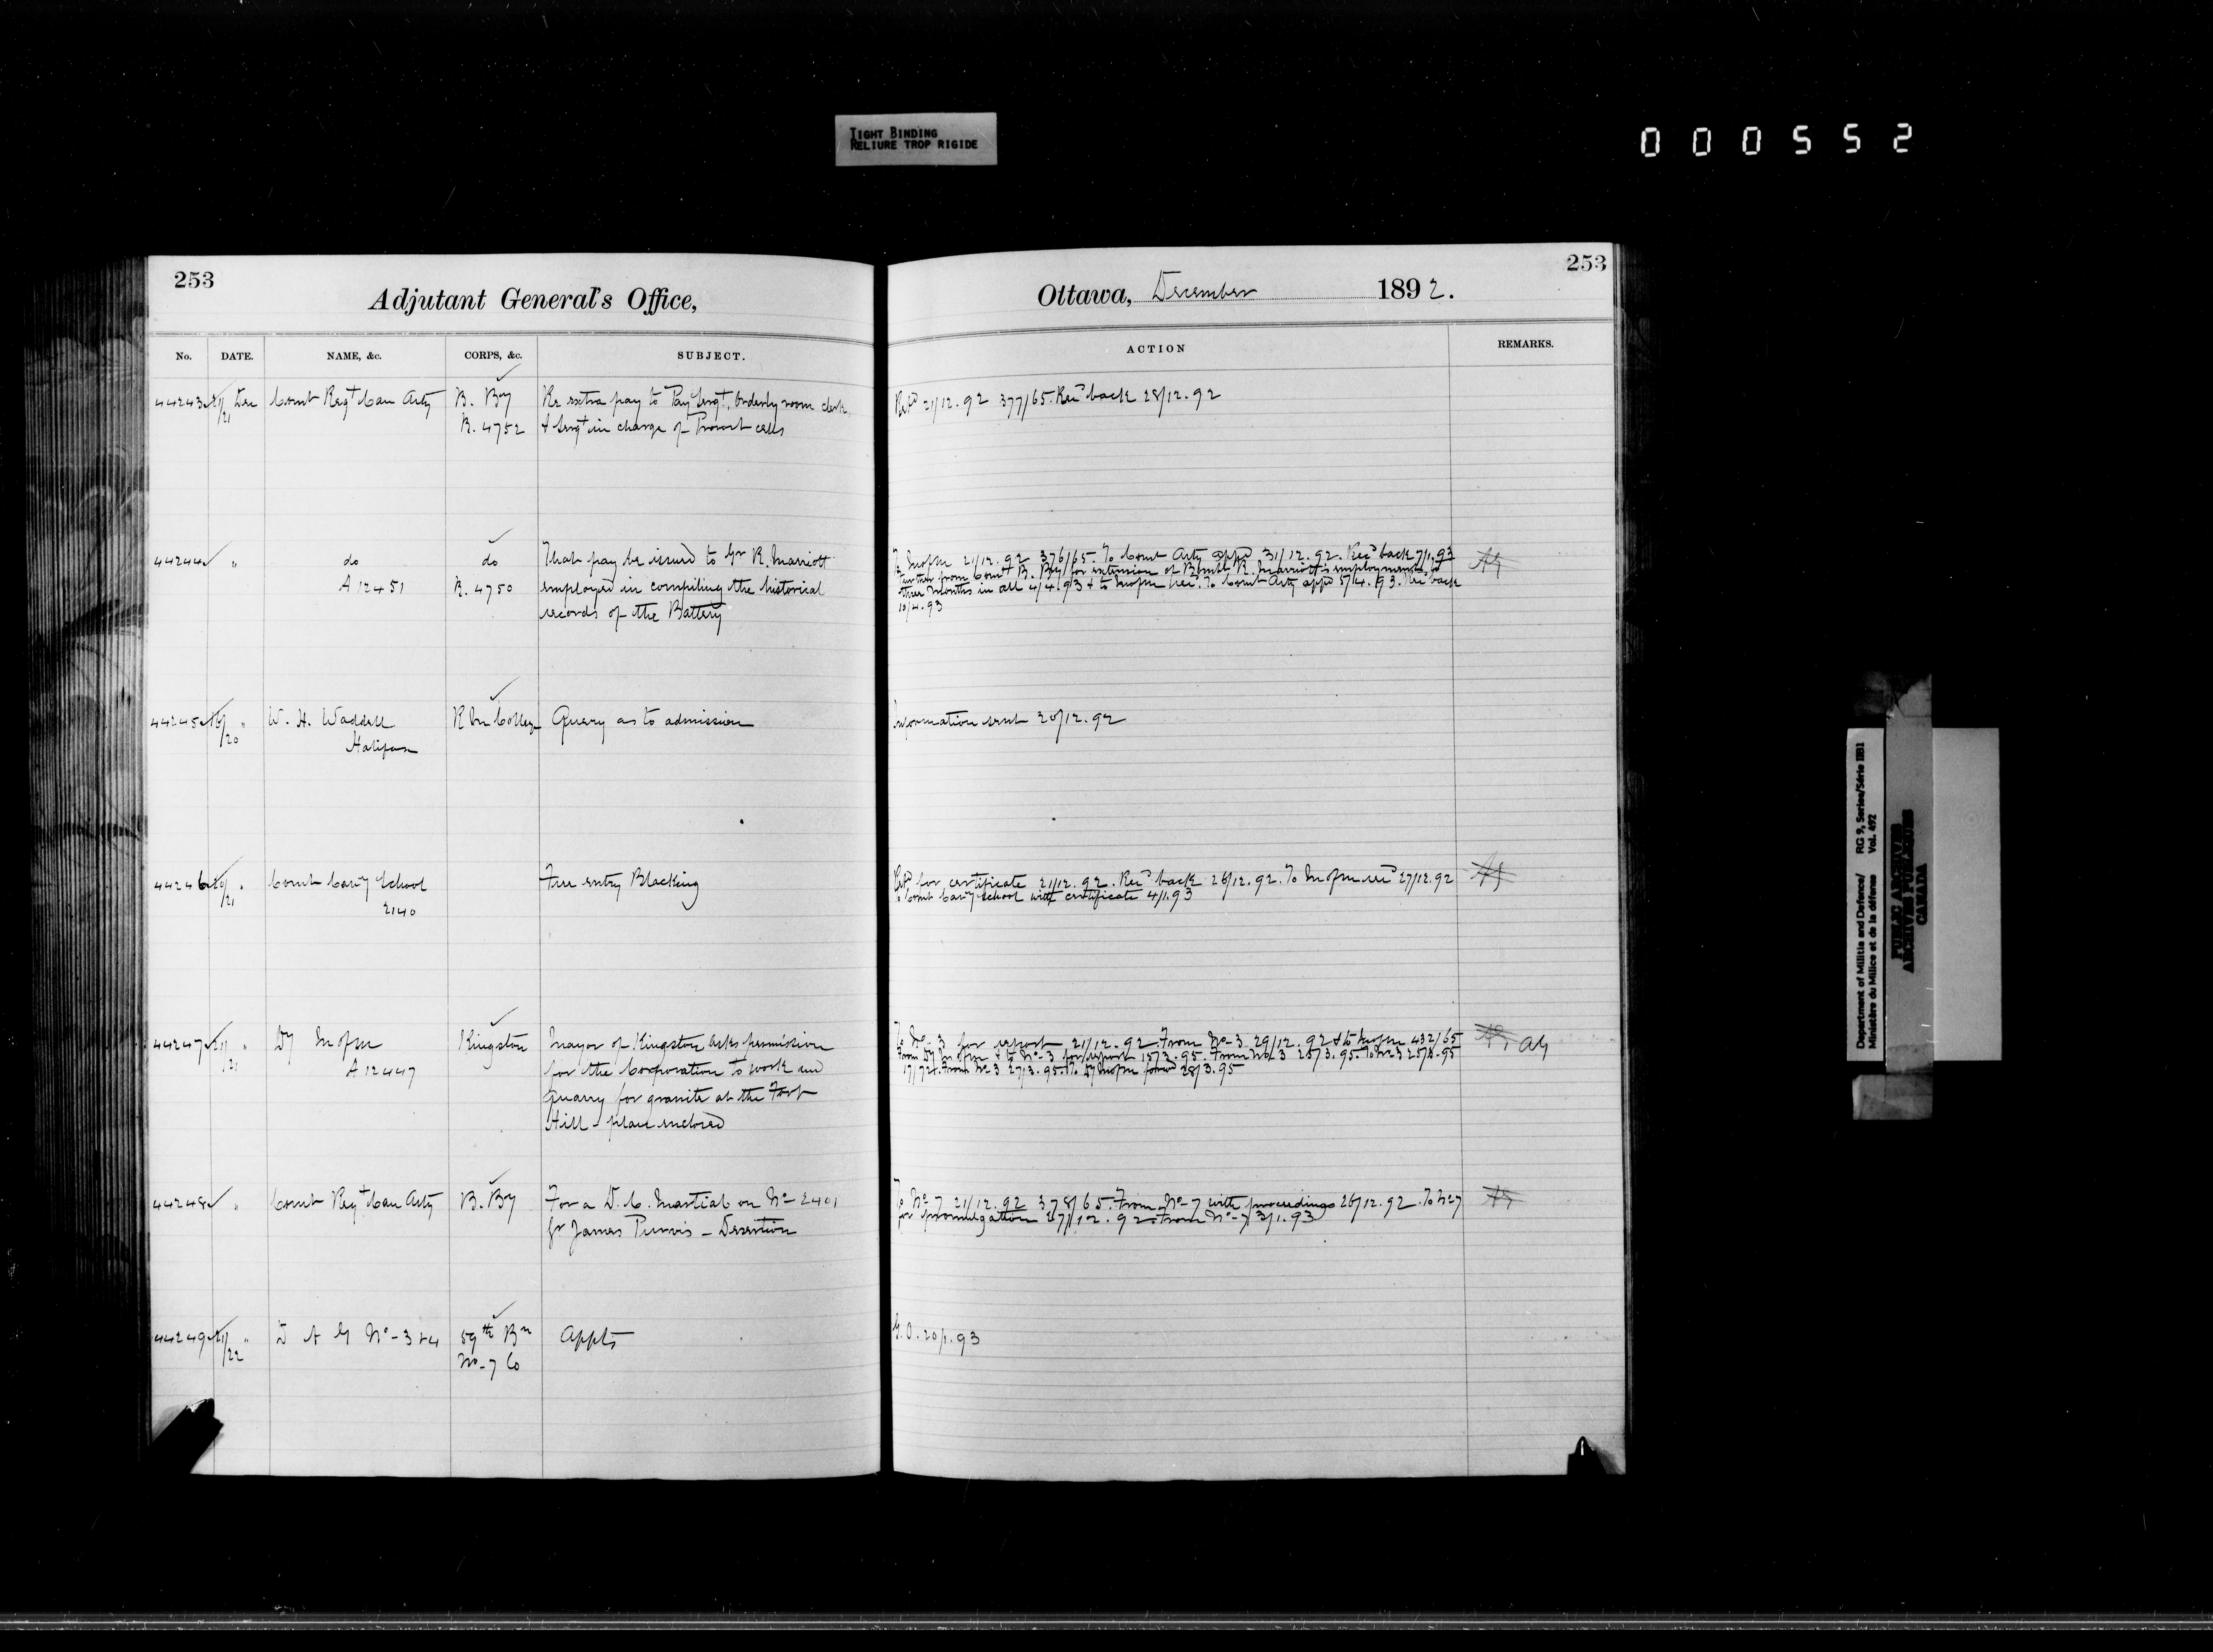 TIGHT BINDING
RELIURE TROP RIGIDE
000552
253
Adjutant General's Office,
No. DATE. NAME, &c. CORPS, &c. SUBJECT.
44243 21/21 Dec Comt Regt Can Arty B. By Re extra pay to Pay Sergt, Orderly room clerk,
R. 4752 & Sergt in charge of Provost cells
44244 " do do That pay be issued to Gr R. Marriott
A 12451 R. 4750 employed in compiling the historical
records of the Battery
44245 16/20 " W. H. Waddell R M College Query as to admission
Halifax
44246 20/21 " Comt Cavy School Free entry Blacking
2140
44247 21/21 " Dy M of M Kingston Mayor of Kingston asks permission
A 12447 for the Corporation to work
quarry for granite at the Fort
Hill - plan enclosed
44248 " Comt Regt Can Arty B. By For a D. C. Martial on No- 2401
Gr James Purvis - Desertion
44249 21/22 " D A G No- 3 & 4 59th Bn Appts
No- 7 Co
Ottawa, December 1892.
253
ACTION REMARKS.
21/12.92 377/65. Recd back 28/12.92
To M of M 21/12.92 376/65. To Comt Arty appd 31/12.92. Recd back 7/1.93
Further from Comt B. By for extension of Bombr R. Marriott's employment to
three months in all 4/4.93 & to M of M recd. To Comt Arty appd 5/4.93. Recd back
10/4.93
Information sent 20/12.92
for certificate 21/12.92. Recd back 26/12.92. To M of M recd 27/12.92
To Comt Cavy School with certificate 4/1.93
To No- 3 for report 21/12.92. From No- 3 29/12.92 & to M of M 432/65 AG
From Dy M of M & to No- 3 for report 15/3.95. From No 3 25/3.95. To No 3 25/3.95
17/72. From No 3 27/3.95. To Dy M of M forwd 28/3.95
To No- 7 21/12.92 378/65. From No- 7 with proceedings 26/12.92. To No 7
for promulgation 27/12.92. From No- 7 3/1.93
G.O. 20/1.93
Department of Militia and Defence/ RG 9, Series/Série IIB1
Ministère du Milice et de la défense Vol. 492
PUBLIC ARCHIVES
ARCHIVES PUBLIQUES
CANADA